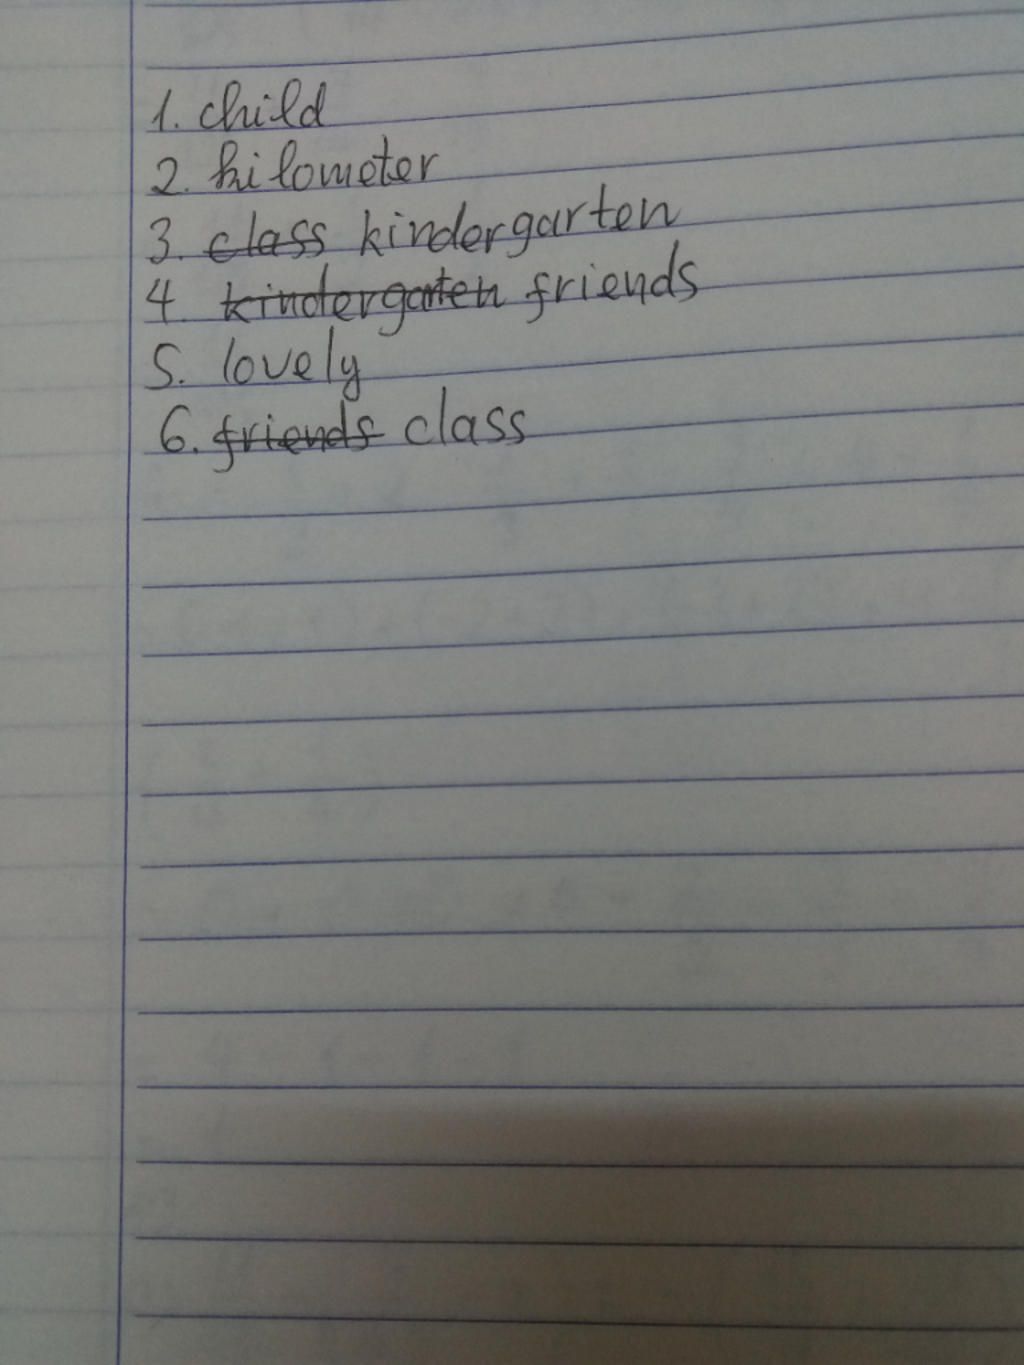 1. child
2. kilometer
3. class kindergarten
4. kindergarten friends
5. lovely
6. friends class